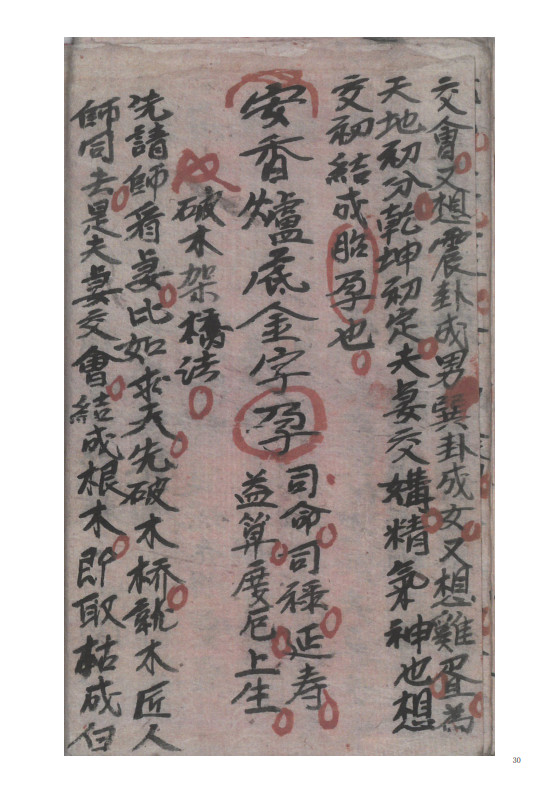 交會又想震卦成男巽卦成女又想雞蛋為
天地初分乾坤初定夫妻交媾精氣神也想
交初結成胎孕也
安香爐底金字孕
司命司祿延寿
益算度厄上生
破木架橋法
先請師看妻比如求夫先破木桥就木匠人
師同去是夫妻交會結成根木即取枯成
30